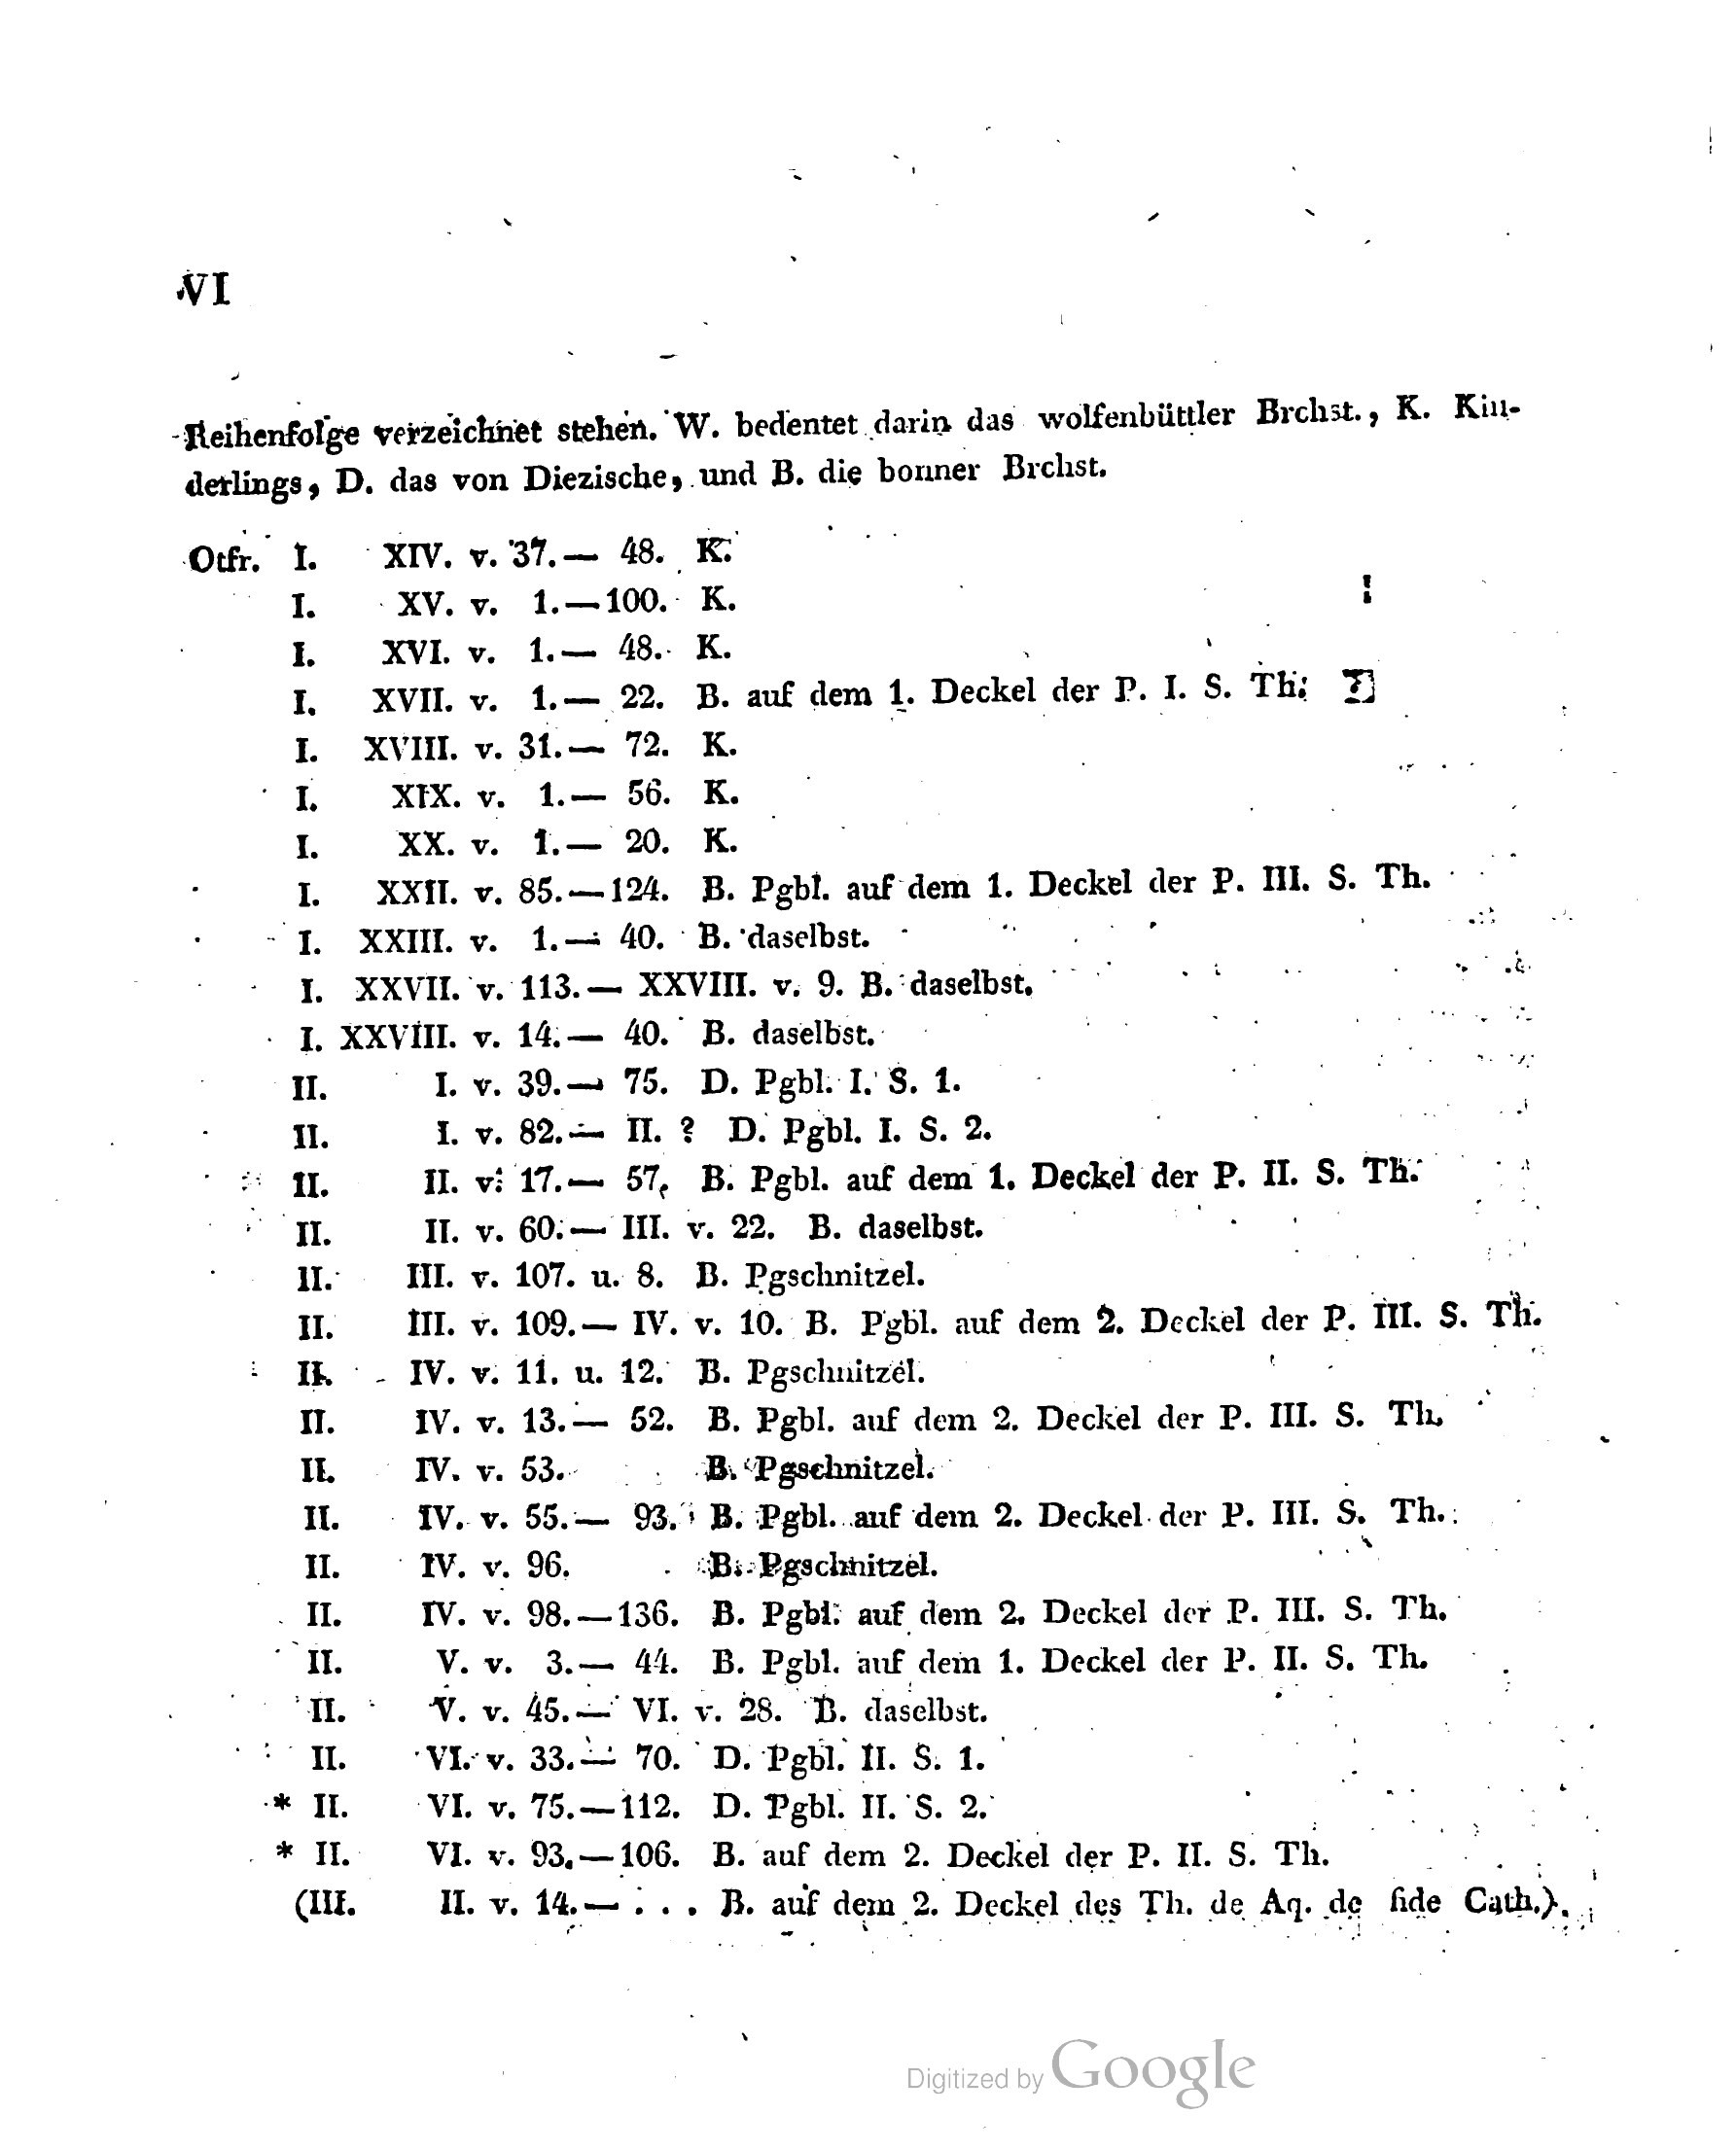 VI
Reihenfolge verzeichnet stehen. W. bedentet darin das wolfenbüttler Brchst., K. Kin-
derlings, D. das von Diezische, und B. die bonner Brchst.
Otfr. I. XIV. v. 37.— 48. K.
I. XV. v. 1.—100. K.
I. XVI. v. 1.— 48. K.
I. XVII. v. 1.— 22. B. auf dem 1. Deckel der P. I. S. Th.
I. XVIII. v. 31.— 72. K.
I. XIX. v. 1.— 56. K.
I. XX. v. 1.— 20. K.
I. XXII. v. 85.—124. B. Pgbl. auf dem 1. Deckel der P. III. S. Th.
I. XXIII. v. 1.— 40. B. daselbst.
I. XXVII. v. 113.— XXVIII. v. 9. B. daselbst.
I. XXVIII. v. 14.— 40. B. daselbst.
II. I. v. 39.— 75. D. Pgbl. I. S. 1.
II. I. v. 82.— II. ? D. Pgbl. I. S. 2.
II. II. v. 17.— 57. B. Pgbl. auf dem 1. Deckel der P. II. S. Th.
II. II. v. 60.— III. v. 22. B. daselbst.
II. III. v. 107. u. 8. B. Pgschnitzel.
II. III. v. 109.— IV. v. 10. B. Pgbl. auf dem 2. Deckel der P. III. S. Th.
II. IV. v. 11. u. 12. B. Pgschnitzel.
II. IV. v. 13.— 52. B. Pgbl. auf dem 2. Deckel der P. III. S. Th.
II. IV. v. 53. B. Pgschnitzel.
II. IV. v. 55.— 93. B. Pgbl. auf dem 2. Deckel der P. III. S. Th.
II. IV. v. 96. B. Pgschnitzel.
II. IV. v. 98.—136. B. Pgbl. auf dem 2. Deckel der P. III. S. Th.
II. V. v. 3.— 44. B. Pgbl. auf dem 1. Deckel der P. II. S. Th.
II. V. v. 45.— VI. v. 28. B. daselbst.
II. VI. v. 33.— 70. D. Pgbl. II. S. 1.
* II. VI. v. 75.—112. D. Pgbl. II. S. 2.
* II. VI. v. 93.—106. B. auf dem 2. Deckel der P. II. S. Th.
(III. II. v. 14.— . . . B. auf dem 2. Deckel des Th. de Aq. de fide Cath.).
Digitized by Google